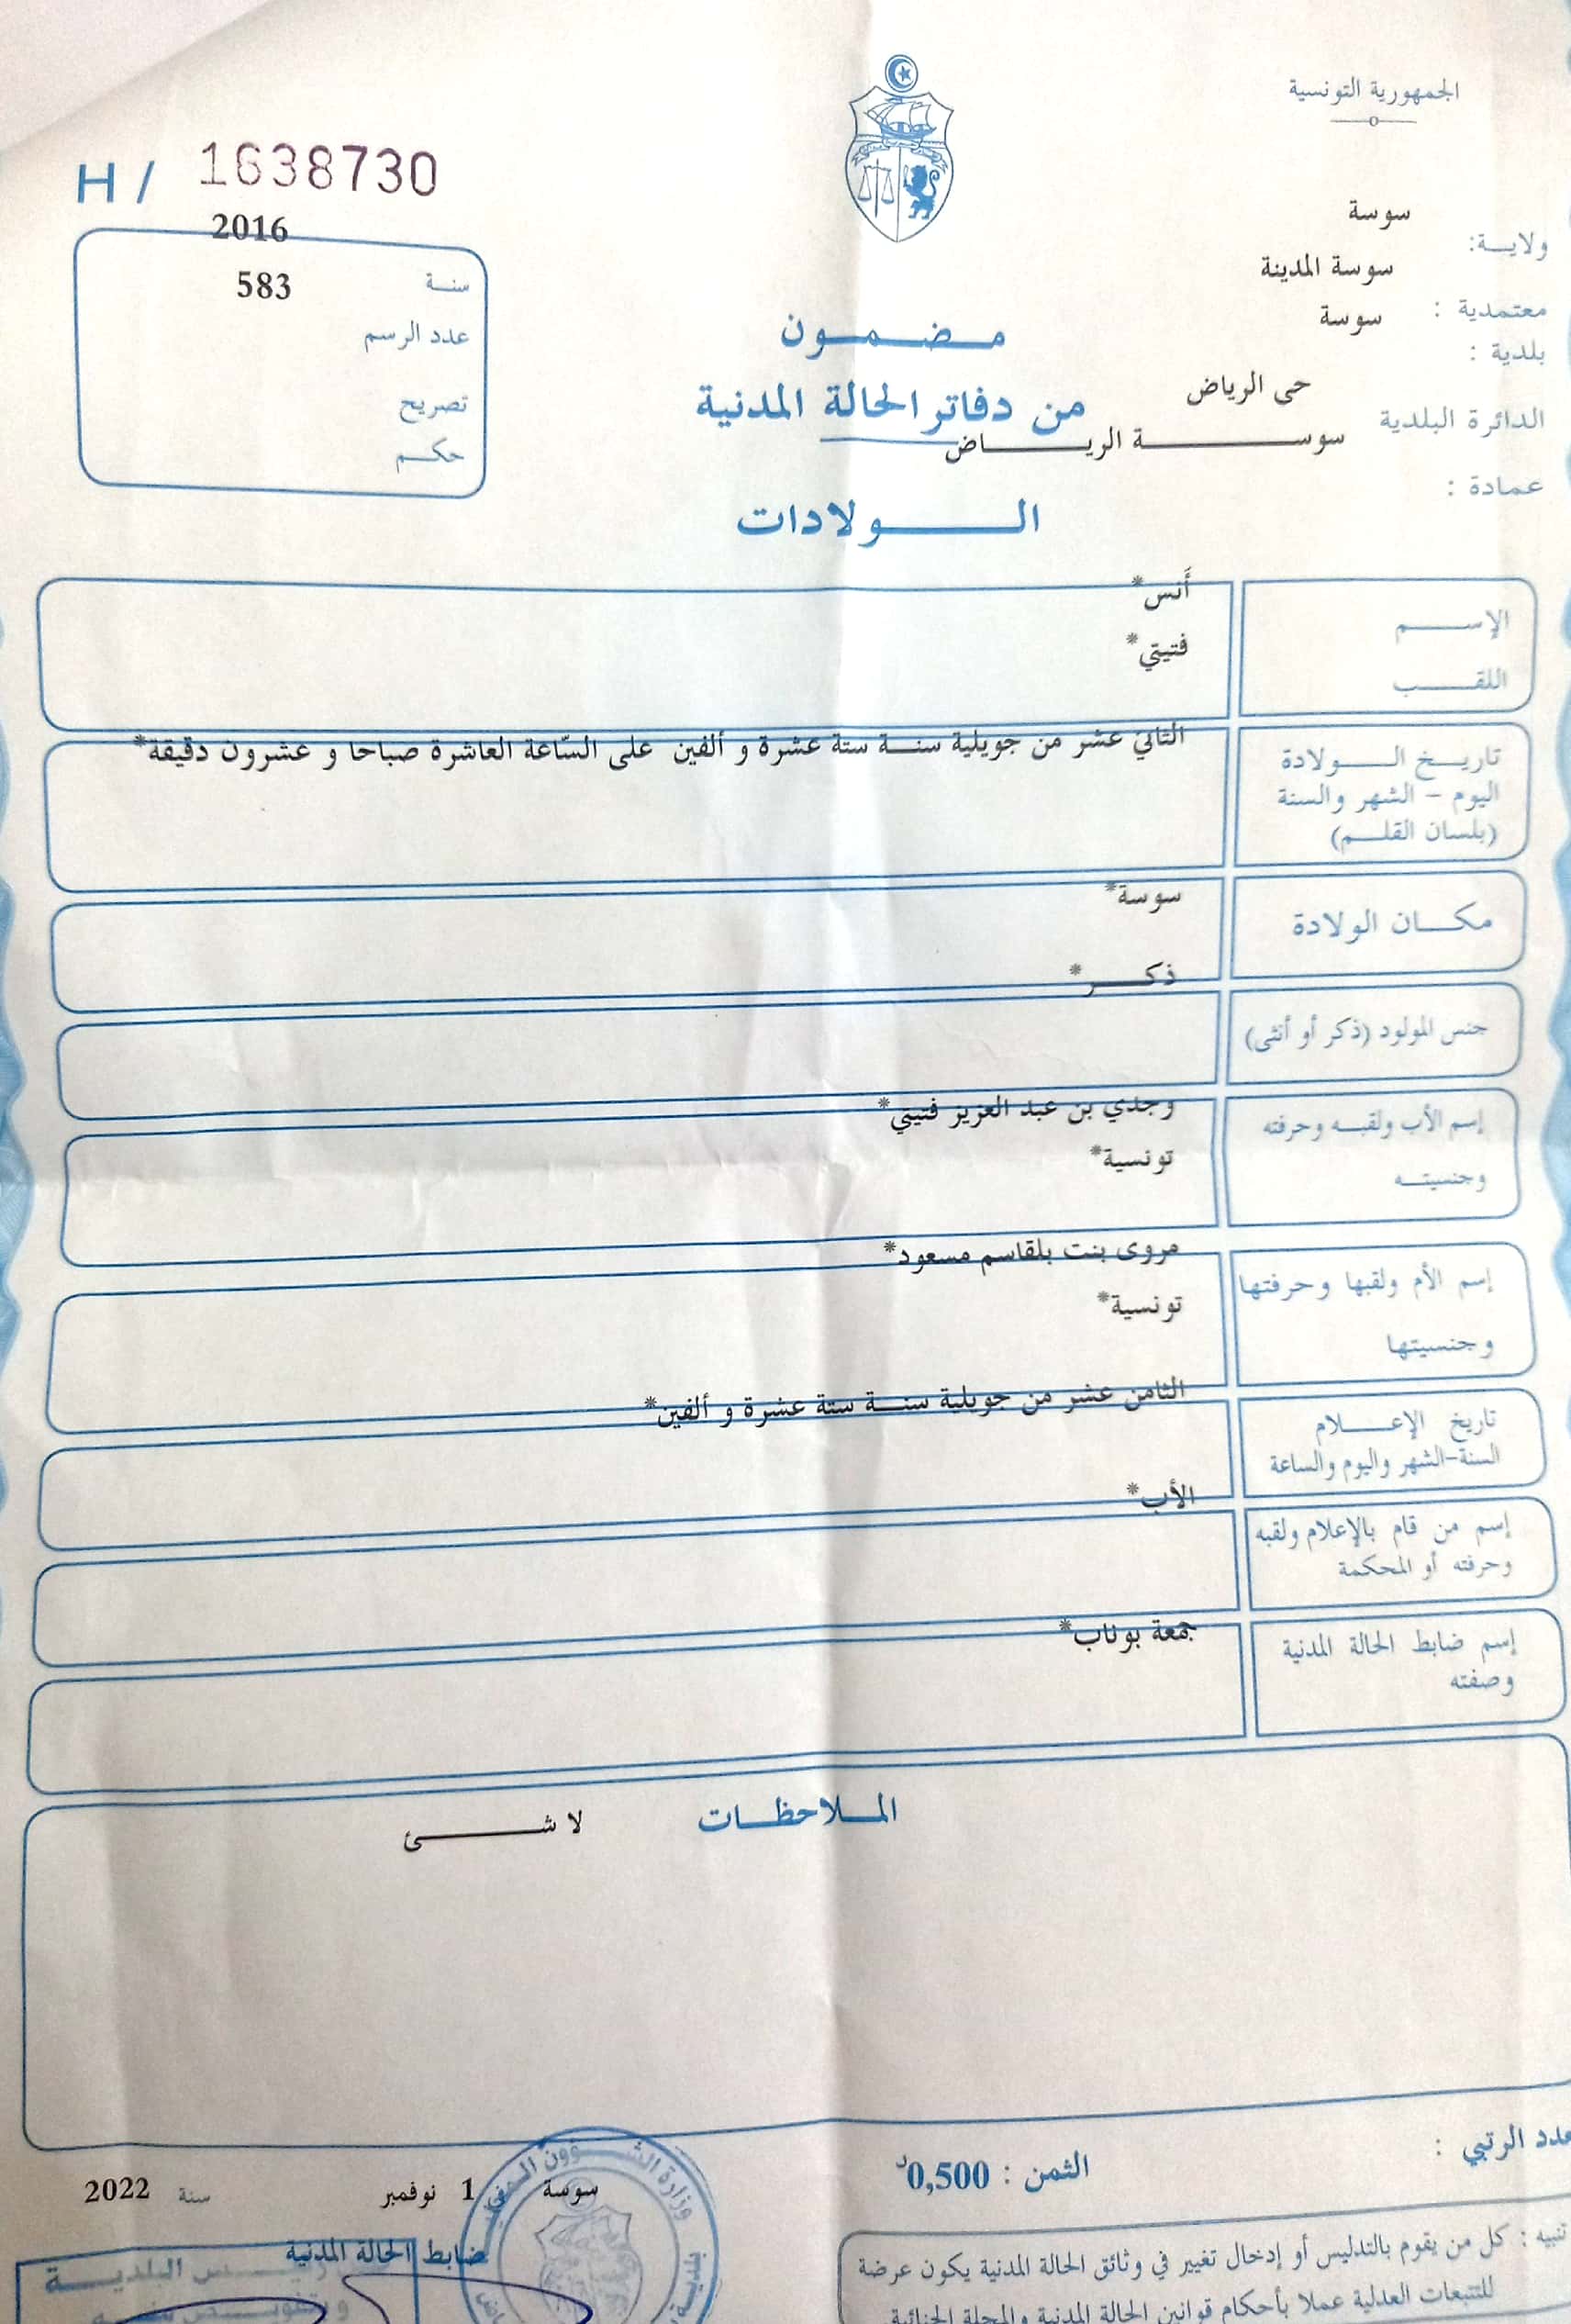 الجمهورية التونسية
H / 1638730
سوسة
ولاية:
سوسة المدينة
معتمدية :
سوسة
بلدية :
حى الرياض
الدائرة البلدية
سوسة الرياض
عمادة :
2016
سنة
583
عدد الرسم
تصريح
حكم
مضمون
من دفاتر الحالة المدنية
الولادات
أنس*
الإسم
فتيتي*
اللقب
الثاني عشر من جويلية سنة ستة عشرة و ألفين على السّاعة العاشرة صباحا و عشرون دقيقة*
تاريخ الولادة
اليوم – الشهر والسنة
(بلسان القلم)
سوسة*
مكان الولادة
ذكر*
جنس المولود (ذكر أو أنثى)
وجدي بن عبد العزيز فتيتي*
إسم الأب ولقبه وحرفته
تونسية*
وجنسيته
مروى بنت بلقاسم مسعود*
إسم الأم ولقبها وحرفتها
تونسية*
وجنسيتها
الثامن عشر من جويلية سنة ستة عشرة و ألفين*
تاريخ الإعلام
السنة-الشهر واليوم والساعة
الأب*
إسم من قام بالإعلام ولقبه
وحرفته أو المحكمة
جمعة بوناب*
إسم ضابط الحالة المدنية
وصفته
الملاحظات
لا شئ
عدد الرتبي :
الثمن : 0,500د
سوسة في 1 نوفمبر سنة 2022
ضابط الحالة المدنية
تنبيه : كل من يقوم بالتدليس أو إدخال تغيير في وثائق الحالة المدنية يكون عرضة
للتتبعات العدلية عملا بأحكام قوانين الحالة المدنية والمجلة الجنائية